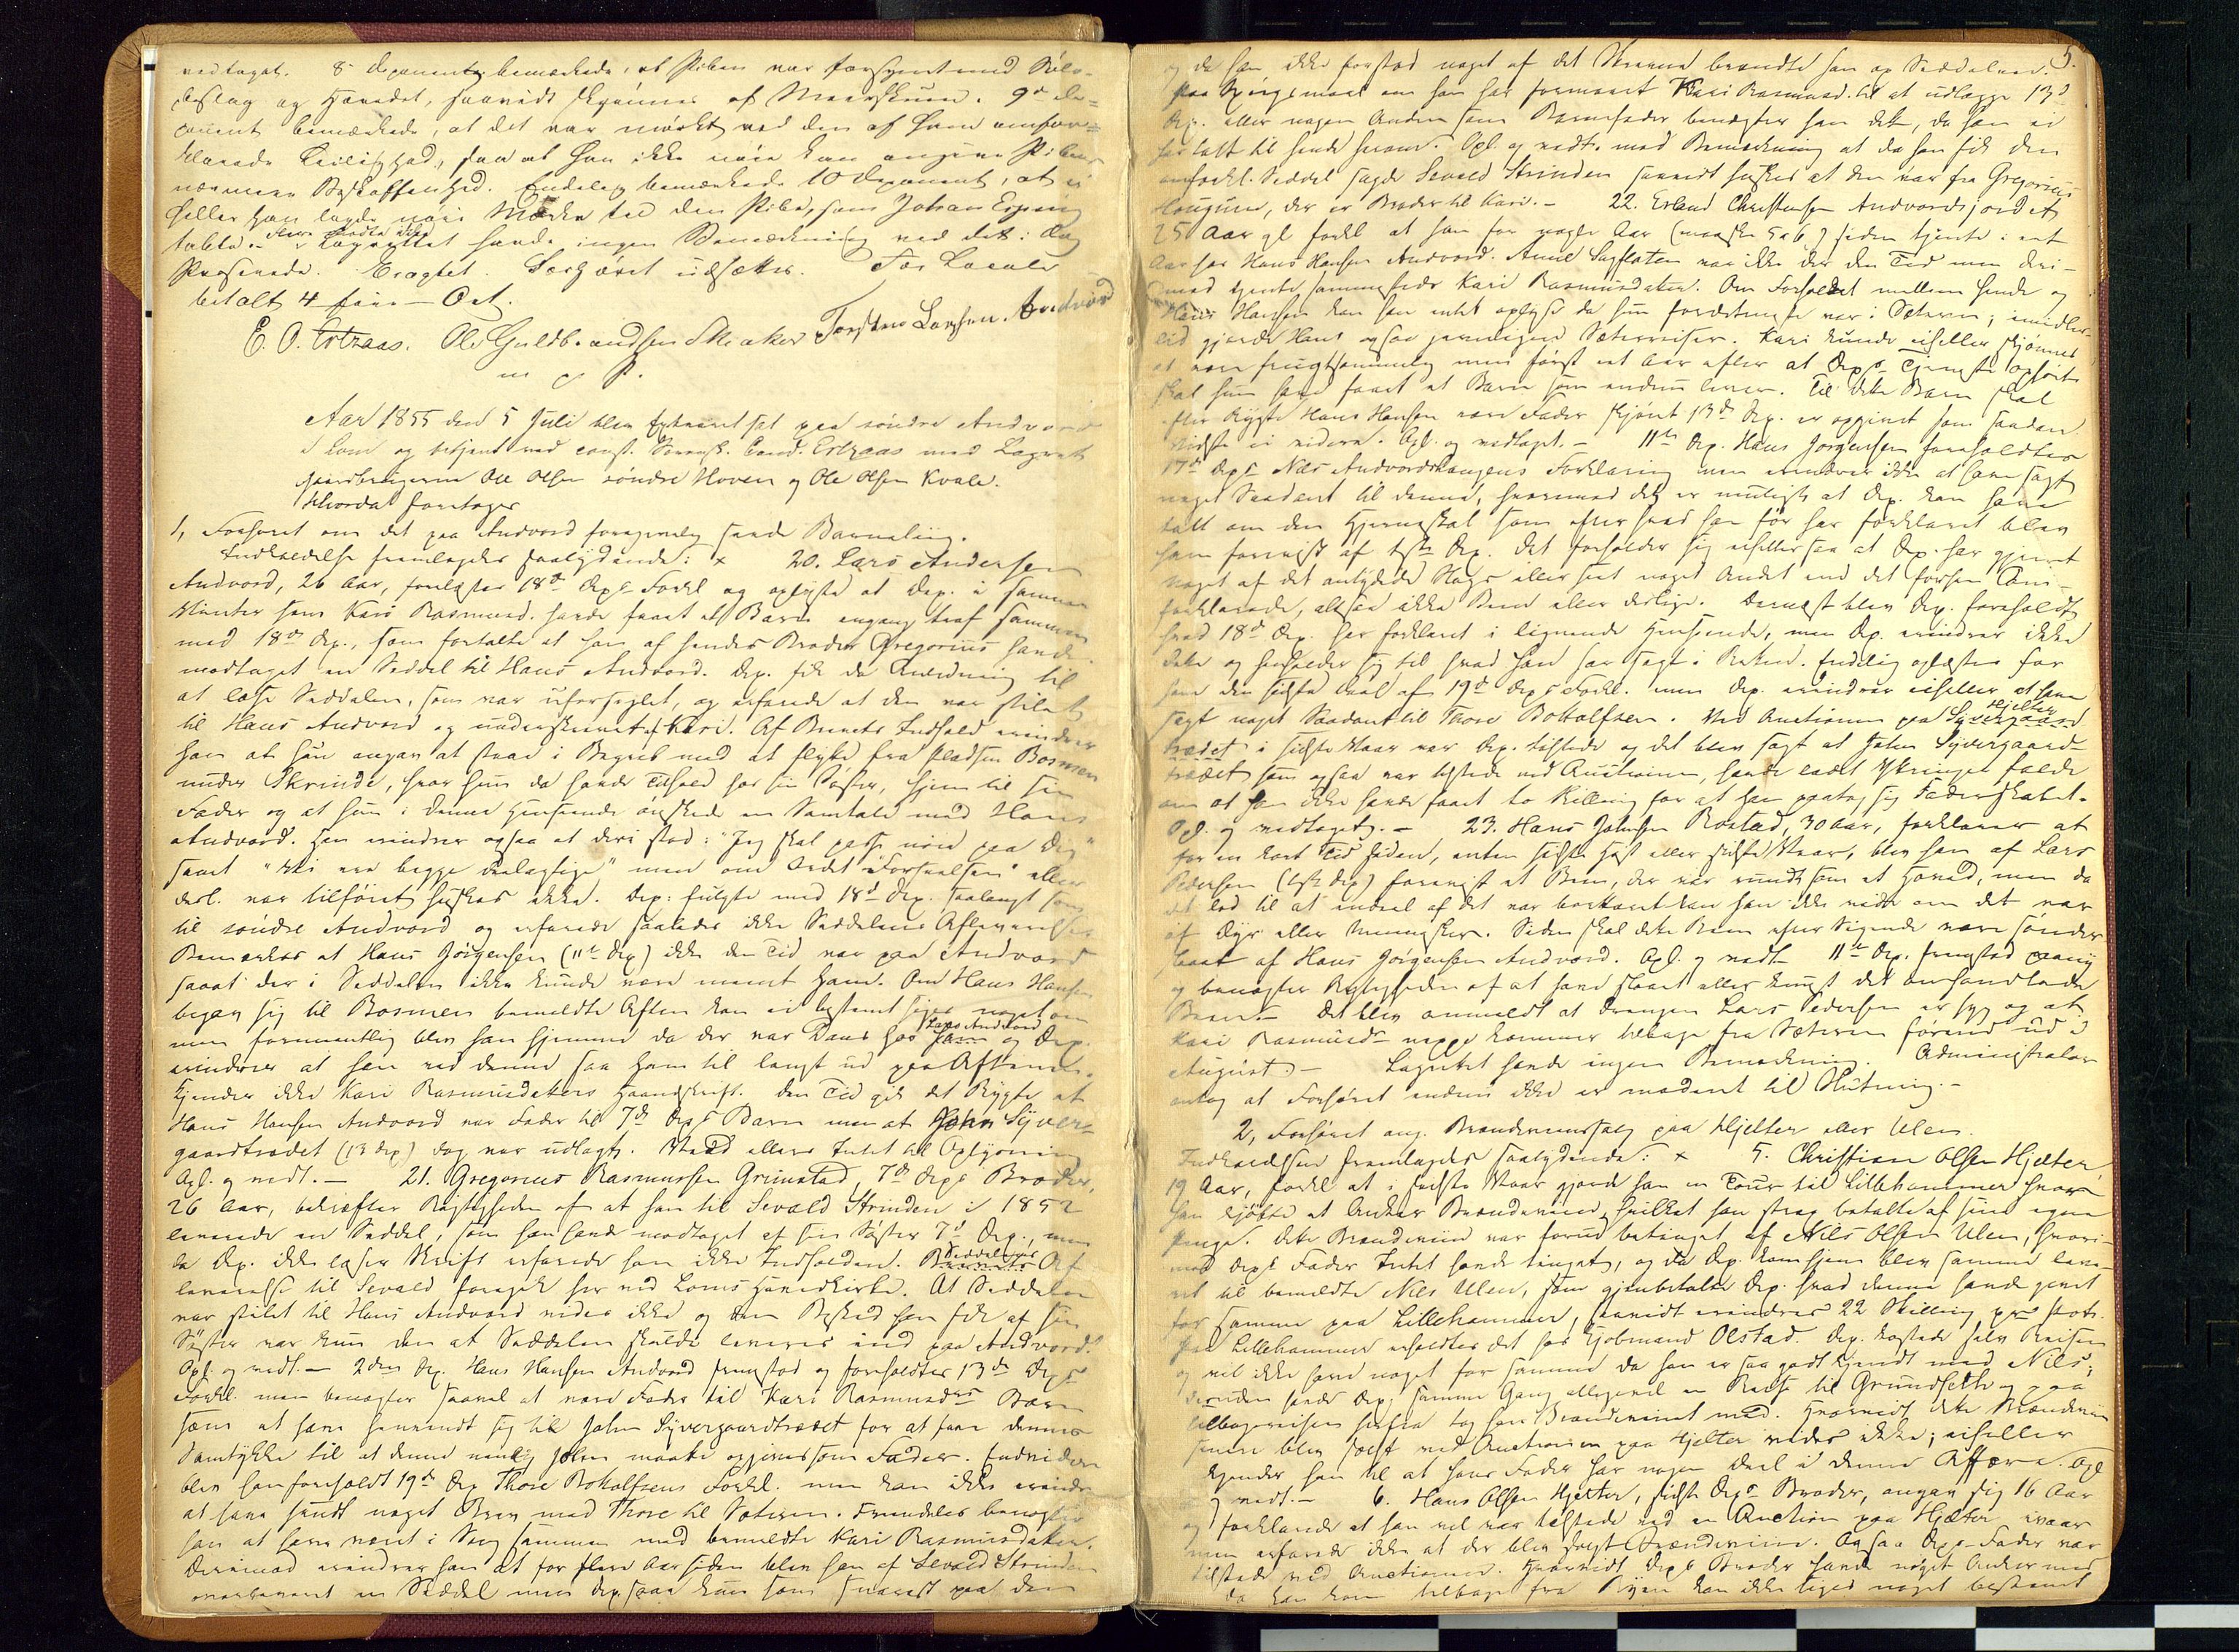 vedtaget. 8 deponent bemærkede, at Piben var forsynet med Sølv-
beslag og Hovedet, saavidt skjønnes af Meerskum. 9de De-
ponent bemærkede, at det var mørkt ved den af ham omfor-
klarede Leilighed, saa at han ikke nøie kan angive Pibens
nærmere Beskaffenhed. Endelig bemærkede 10 Deponent, at ei
heller han lagde nøie Mærke til den Pibe, som Johan Esping
tabte. Lagrettet havde ingen Bemærkning ved det i Dag
Passerede. Eragtet. Forhøret udsættes. For Locale
betalt 4 fire – Ort.
E. O. Ertzaas. Ole Guldbrandsen Skeaker Torsten Larssen Andvord
m. p. P.
Aar 1855 den 5 Juli blev Extraret sat paa søndre Andvord
i Lom og betjent ved const. Sorensk. Cand. Ertzaas med Lagrett
Gaardbrugerne Ole Olsen søndre Hoven og Ole Olsen Kvale.
Hvorda foretoges
1, Forhøret om det paa Andvord foregivelig fundne Barnelig.
Indkaldelse fremlagdes saalydende: x 20. Lars Andersen
Andvord, 26 Aar, forelæstes 18de Dep.s Forkl. og oplyste at Dep. i samme
Vinter som Kari Rasmusd. havde faaet et Barn engang traf sammen
med 18de Dep., som fortalte at han af hendes Broder Gregorius havde
modtaget en Seddel til Hans Andvord. Dep. fik da Anledning til
at læse Seddelen, som var uforseglet, og erfarede at den var stilet
til Hans Andvord og underskrevet af Kari. Af Brevets Indhold erindrer
han at hun angav at staae i Begreb med at flytte fra Pladsen Bosmen
under Skrinde, hvor hun da havde Tilhold hos sin Søster, hjem til sin
Fader og at hun i denne Henseende ønskede en Samtale med Hans
Andvord. Han erindrer ogsaa at deri stod: "Jeg skal passe nøie paa Dig"
samt "Vi ere begge deelagtige" men om Ordet "Forseelsen" eller
desl. var tilføiet huskes ikke. Dep. fulgte med 18d Dep. saalangt som
til søndre Andvord og erfarede saaledes ikke Seddelens Afleverelse.
Bemærkes at Hans Jørgensen (11te Dep) ikke den Tid var paa Andvord
saaat der i Seddelen ikke kunde være meent ham. Om Hans Hansen
begav sig til Bosmen bemeldte Aften kan ei bestemt siges noget om
men formentlig blev han hjemme da der var Dans hos Lars Andvord og Dep.
erindrer at han ved denne saa ham til langt ud paa Aftenen.
Kjender ikke Kari Rasmusdatters Haandskrift. Den Tid gik det Rygte at
Hans Hansen Andvord var Fader til 7de Deps Barn men at John Syver-
gaardtrædet (13 Dep) dog var udlagt. Veed ellers Intet til Oplysning
Opl. og vedt. – 21. Gregorius Rasmussen Grimstad, 7de Deps Broder,
26 Aar, bekræfter Rigtigheden af at han til Sevald Strinden i 1852
leverede en Seddel, som han havde modtaget af sin Søster 7d Dep., men
da Dep. ikke læser Skrift erfarede han ikke Indholden. Seddelens Af-
leverelse til Sevald foregik her ved Loms Hovedkirke. At Seddelen
var stilet til Hans Andvord vides ikke og den Besked han fik af sin
Søster var kun den at Seddelen skulde leveres ind paa Andvord.
Opl. og vedt. – 2den Dep. Hans Hansen Andvord fremstod og foreholdtes 13de Deps
Forkl. men benægter saavel at være Fader til Kari Rasmusds Barn
som at have henvendt sig til John Syvergaardtrædet for at faae dennes
Samtykke til at denne nemlig John maatte opgives som Fader. Endvidere
blev han foreholdt 19de Dep Thore Botolfsens Forkl. men kan ikke erindre
at have sendt noget Brev med Thore til Sæteren. Fremdeles benægter
han at have været i Seng sammen med bemeldte Kari Rasmusdatter.
Derimod erindrer han at for flere Aar siden blev han af Sevald Strinden
overleveret en Seddel men Dep. saae kun som snarest paa den
5.
og da han ikke forstod noget af det Skrevne brændte han op Seddelen.
Paa Spørgsmaal om han har formaaet Kari Rasmusd. til at udlægge 13d
Dep. eller nogen Anden som Barnefader benægter han det, da han ei
har talt til hende herom. Opl. og vedt. med Bemærkning at da han fik den
omforkl. Seddel sagde Sevald Strinden saavidt huskes at den var fra Gregorius
Haugum, der er Broder til Kari. – 22. Erland Christensen Andvordsjordet
25 Aar gl. forkl. at han for nogle Aar (maaske 5 a 6) siden tjente i et
Aar hos Hans Hansen Andvord. Anne Sagflaten var ikke der den Tid men der-
imod tjente sammesteds Kari Rasmusdatter. Om Forholdet mellem hende og
Hans Hansen kan han intet oplyse da hun fordetmeste var i Sæteren; imidler-
tid gjorde Hans ogsaa jevnligen Sæterreiser. Kari kunde eiheller skjønnes
at være frugtsommelig men først et Aar efter at Deps Tjeneste ophørte
skal hun have faaet et Barn som endnu lever. Til dette Barn skal
efter Rygte Hans Hansen være Fader skjønt 13de Dep. er opgivet som saadan.
Vidste ei videre. Opl. og vedtaget. – 11te Dep. Hans Jørgensen foreholdtes
17de Deps Nils Andvordshaugens Forklaring men erindrer ikke at have sagt
noget Saadant til denne, hvorimod det er muligt at Dep. kan have
talt om den Hjerneskal som efter hvad han før har forklaret blev
ham foreviist af 1ste Dep. Det forholder sig eiheller saa at Dep. har gjemt
noget af det antydede Slags eller seet noget Andet end det forhen om-
forklarede, altsaa ikke Been eller deslige. Dernæst blev Dep. foreholdt
hvad 18de Dep. har forklaret i lignende Henseende, men Dep. erindrer ikke
dette og henholder sig til hvad han har sagt i Retten. Endelig oplæstes for
ham den sidste Deel af 19de Deps Forkl. men Dep. erindrer eiheller at have
sagt noget Saadant til Thore Botholfsen. Ved Auctionen paa Hjelter
i sidste Vaar var Dep. tilstede og det blev sagt at John Syvergaard-
trædet som ogsaa var tilstede ved Auctionen, havde ladet Ytringer falde
om at han ikke havde faaet to Skilling for at han paatog sig Faderskabet.
Opl. og vedtaget. – 23. Hans Johnsen Rostad, 30 Aar, forklarer at
for en kort Tid siden, enten sidste Høst eller sidste Vaar, blev han af Lars
Pedersen (1ste Dep) foreviist et Been, der var rundt som et Hoved, men da
det lod til at endeel af det var bortkommet kan han ikke vide om det var
af Dyr eller Mennesker. Siden skal dette Been efter Sigende være sønder-
slaaet af Hans Jørgensen Andvord. Opl. og vedt. 11te Dep. fremstod paany
og benægter Rigtigheden af at have slaaet eller knust det omhandlede
Been. – Det blev anmeldt at Drengen Lars Pedersen er syg og at
Kari Rasmusdr neppe kommer tilbage fra Sæteren førend ud i
August. – Lagrettet havde ingen Bemærkning. Administrator
antog at Forhøret endnu ikke er modent til Slutning. –
2, Forhøret ang. Brændeviinssalg paa Hjelter eller Ulen.
Indkaldelsen fremlagdes saalydende: x 5. Christian Olsen Hjelter,
19 Aar, forkl. at i sidste Vaar gjorde han en Tour til Lillehammer hvor
han kjøbte et Anker Brændeviin, hvilket han strax betalte af sine egne
Penge. Dette Brændeviin var forud betinget af Nils Olsen Ulen, hvori-
mod Deps Fader Intet havde tinget, og da Dep. kom hjem blev samme leve-
ret til bemeldte Nils Ulen, som gjenbetalte Dep. hvad denne havde givet
for samme paa Lillehammer, saavidt erindres 22 Skilling pr. Pot.
Paa Lillehammer erholdtes det hos Kjøbmand Olstad. Dep. kostede selv Reisen
og vil ikke have noget for samme da han er saa godt kjendt med Nils;
desuden havde Dep. samme Gang alligevel en Reise til Grundseth og paa
Tilbagereisen herfra tog han Brændevinet med. Hvorvidt dette Brændeviin
senere blev solgt ved Auctionen paa Hjelter vides ikke; eiheller
kjender han til at hans Fader har nogen Deel i denne Affære. Opl
og vedt. – 6. Hans Olsen Hjelter, sidste Deps Broder, angav sig 16 Aar
og forklarede at han vel var tilstede ved en Auction paa Hjelter ivaar
men erfarede ikke at der blev solgt Brændeviin. Ogsaa Deps Fader var
tilstede ved Auctionen. Hvorvidt Deps Broder havde noget Anker med
da han kom tilbage fra Byen kan ikke siges noget bestemt